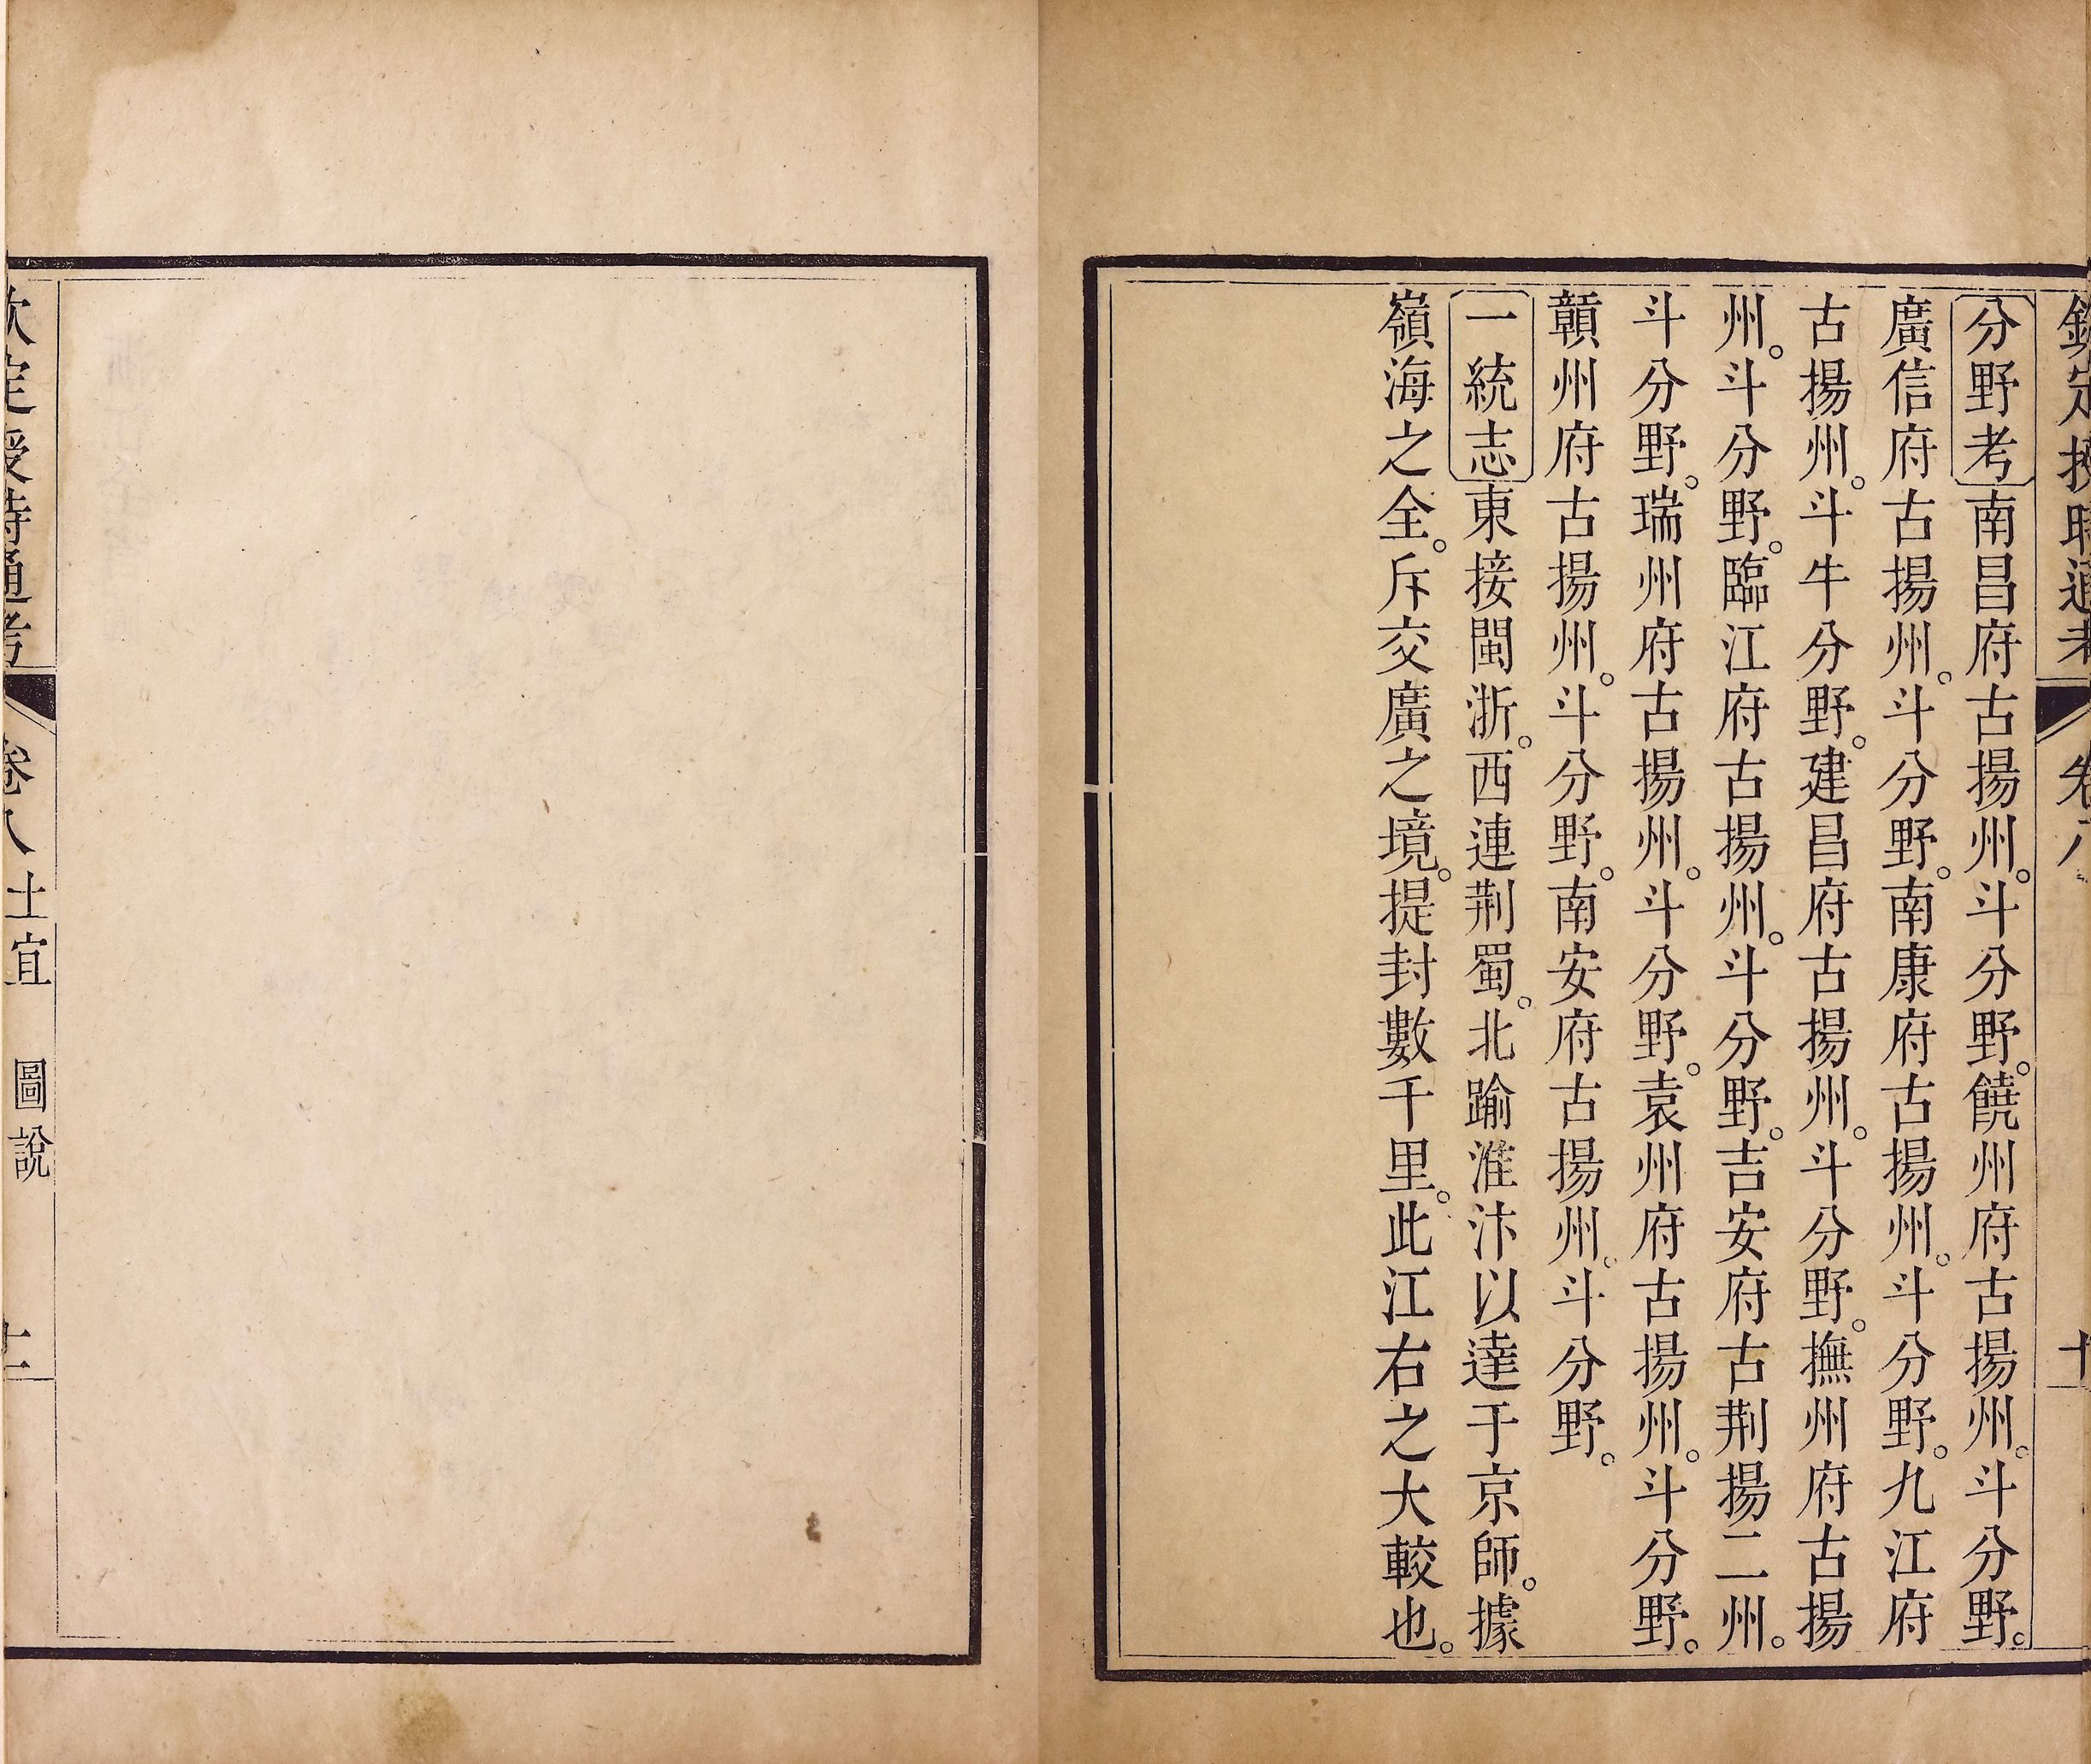 欽定授時通考 卷八 十
分野考南昌府古揚州。斗分野。饒州府古揚州。斗分野。
廣信府古揚州。斗分野。南康府古揚州。斗分野。九江府
古揚州。斗牛分野。建昌府古揚州。斗分野。撫州府古揚
州。斗分野。臨江府古揚州。斗分野。吉安府古荆揚二州。
斗分野。瑞州府古揚州。斗分野。袁州府古揚州。斗分野。
贑州府古揚州。斗分野。南安府古揚州。斗分野。
一統志東接閩浙。西連荆蜀。北踰淮汴以達于京師。據
嶺海之全。斥交廣之境。提封數千里。此江右之大較也。
欽定授時通考 卷八 土宜 圖說